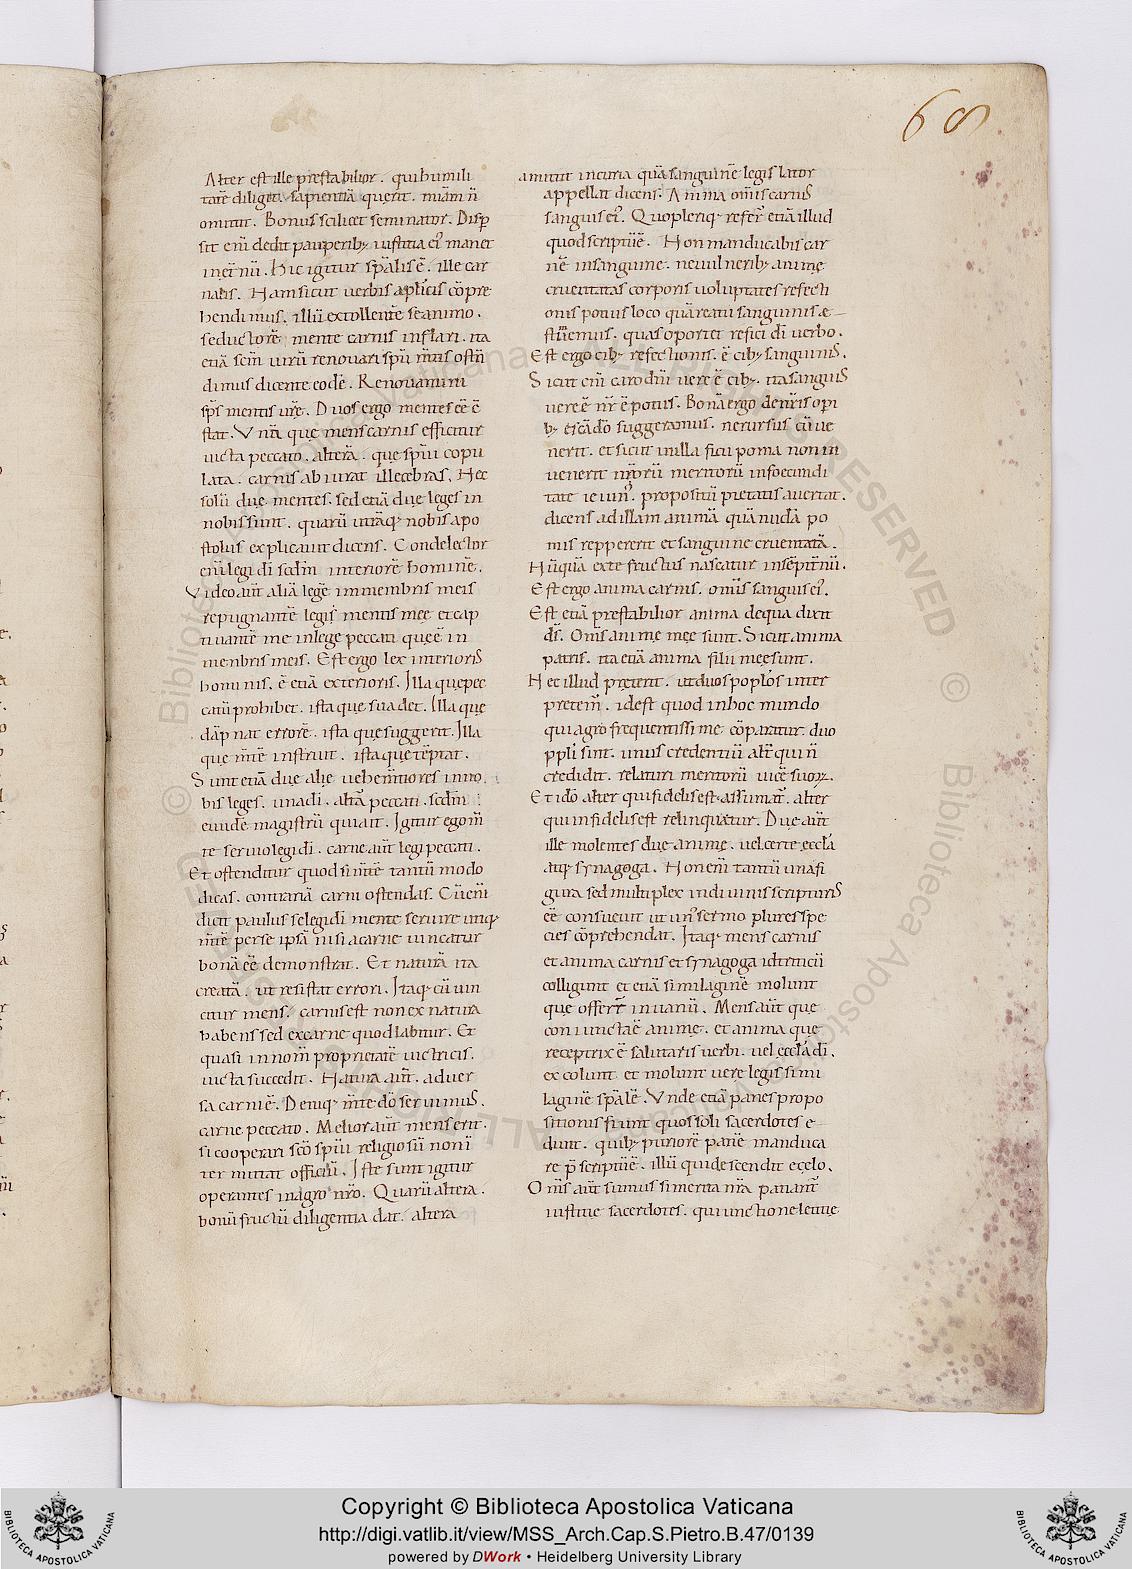 68
Alter est ille prestabilior. qui humili
tatē diligit. sapientiā querit. miām ñ
omittit. Bonus scilicet seminator. Disp
sit eni dedit pauperibꝫ iustitia ei' manet
ineťnū. Hic igitur spālis ē. ille car
nalis. Nam sicut uerbis aplicis cōpre
hendimus. illū extollentē se animo.
seductorē mente carnis inflari. ita
etiā scdm uirū renouari spū mtis ostū
dimus dicente eodē. Renouamini
spš mentis urē. Duos ergo mentes eē ē
stat. Vnā que mens carnis efficitur
uicta peccato. alterā. que spūi copu
lata. carnis abiurat illecebras. Hec
solū due mentes. sed etiā due leges in
nobis sunt. quarū utrāqꝫ nobis apo
stolus explicauit dicens. Condelector
enī legi di scdm interiorē hominē.
Video aūt aliā legē in membris meis
repugnantē legis mentis mee et cap
tiuantē me in lege peccati que ē in
menbris meis. Est ergo lex interioris
hominis. ē etiā exterioris. Illa que pec
catū prohibet. ista que suadet. Illa que
dāpnat errorē. ista que suggerit. Illa
que mtē instruit. ista que tēptat.
Sunt etiā due alie uehemtiores in no
bis leges. una di. altā peccati. scdm
eiudē magistrū qui ait. Igitur ego m
te seruio legi di. carne aūt legi peccati.
Et ostenditur quod si mtē tantū modo
dicas. contrariā carni ostendas. Cū enī
dicit paulus se legi di mente seruire utiqꝫ
mtē per se ipsā nisi a carne uincatur
bonā eē demonstrat. Et naturā ita
creatā. ut resistat errori. Itaqꝫ cū uin
citur mens. carnis est non ex natura
habens sed ex carne quod labitur. Et
quasi in nom proprietatē uictricis.
uicta succedit. Natura aūt. aduer
sa carni ē. Deniqꝫ mte dō seruimus.
carne peccato. Melior aūt mens erit.
si cooperari scō spūi religiosū noni
ter nititat officiū. Iste sunt igitur
operantes in agro nro. Quarū altera.
bonū fructū diligentia dat. altera
amittit incuria quā sanguinē legis lator
appellat dicens. Anima omīs carnis
sanguis ei'. Quo pleriqꝫ refer̃ etiā illud
quod scriptū ē. Non manducabis car
nē in sanguine. ne uulneribꝫ anime
cruentatas corporis uoluptates refecti
onis potius loco quā reatū sanguinis e
stimemus. quas oportet refici di uerbo.
Est ergo cibꝫ refectionis. ē cibꝫ sanguinis.
Sicut enī caro dnī uere ē cibꝫ. ita sanguis
uere ē nr̄ ē potus. Bonā ergo de nris opi
bꝫ ei' cādō suggeramus. ne rursus cū ue
nerit. et sicut in illa ficu poma non in
uenerit nrorū meritorū infoecundi
tate ieiun'. propositū pietatis auertat.
dicens ad illam animā quā nudā po
mis reppererit et sanguine cruentatā.
Nūquā ex te fructus nascatur in sēpitnū.
Est ergo anima carnis. omīs sanguis ei'.
Est etiā prestabilior anima de qua dixit
ds. Omīs anime mee sunt. Sicut anima
patris. ita etiā anima filii mee sunt.
Nec illud preterit. ut duos poplos inter
pretem̃. idest quod in hoc mundo
qui agro frequentissime cōparatur duo
ppli sint. unus credentiū alt̃ qui ñ
credidit. relaturi meritorū uicē suoꝝ.
Et idō alter qui fidelis est assumat̃. alter
qui infidelis est relinquetur. Due aūt
ille molentes due anime. uel certe eccla
atqꝫ synagoga. Non enī tantū una fi
gura sed multiplex in diuinis scripturis
eē consueuit ut un' sermo plures spe
cies cōprehendat. Itaqꝫ mens carnis
et anima carnis et synagoga id triticū
colligunt et etiā similaginē molunt
que offert̃ in uanū. Mens aūt que
coniuncta ē anime. et anima que
receptrix ē salutaris uerbi. uel eccla di.
ex colunt et molunt uere legis simi
laginē spālē. Vnde etiā panes propo
sitionis fiunt quos soli sacerdotes e
dunt. quibꝫ puriorē panē manduca
re p̄scriptū ē. illū qui descendit e celo.
Om̄s aūt sumus si merita nra patiant̃
iustitie sacerdotes. qui unctione letitie
Copyright © Biblioteca Apostolica Vaticana
http://digi.vatlib.it/view/MSS_Arch.Cap.S.Pietro.B.47/0139
powered by DWork • Heidelberg University Library
BIBLIOTECA APOSTOLICA VATICANA
BIBLIOTECA APOSTOLICA VATICANA